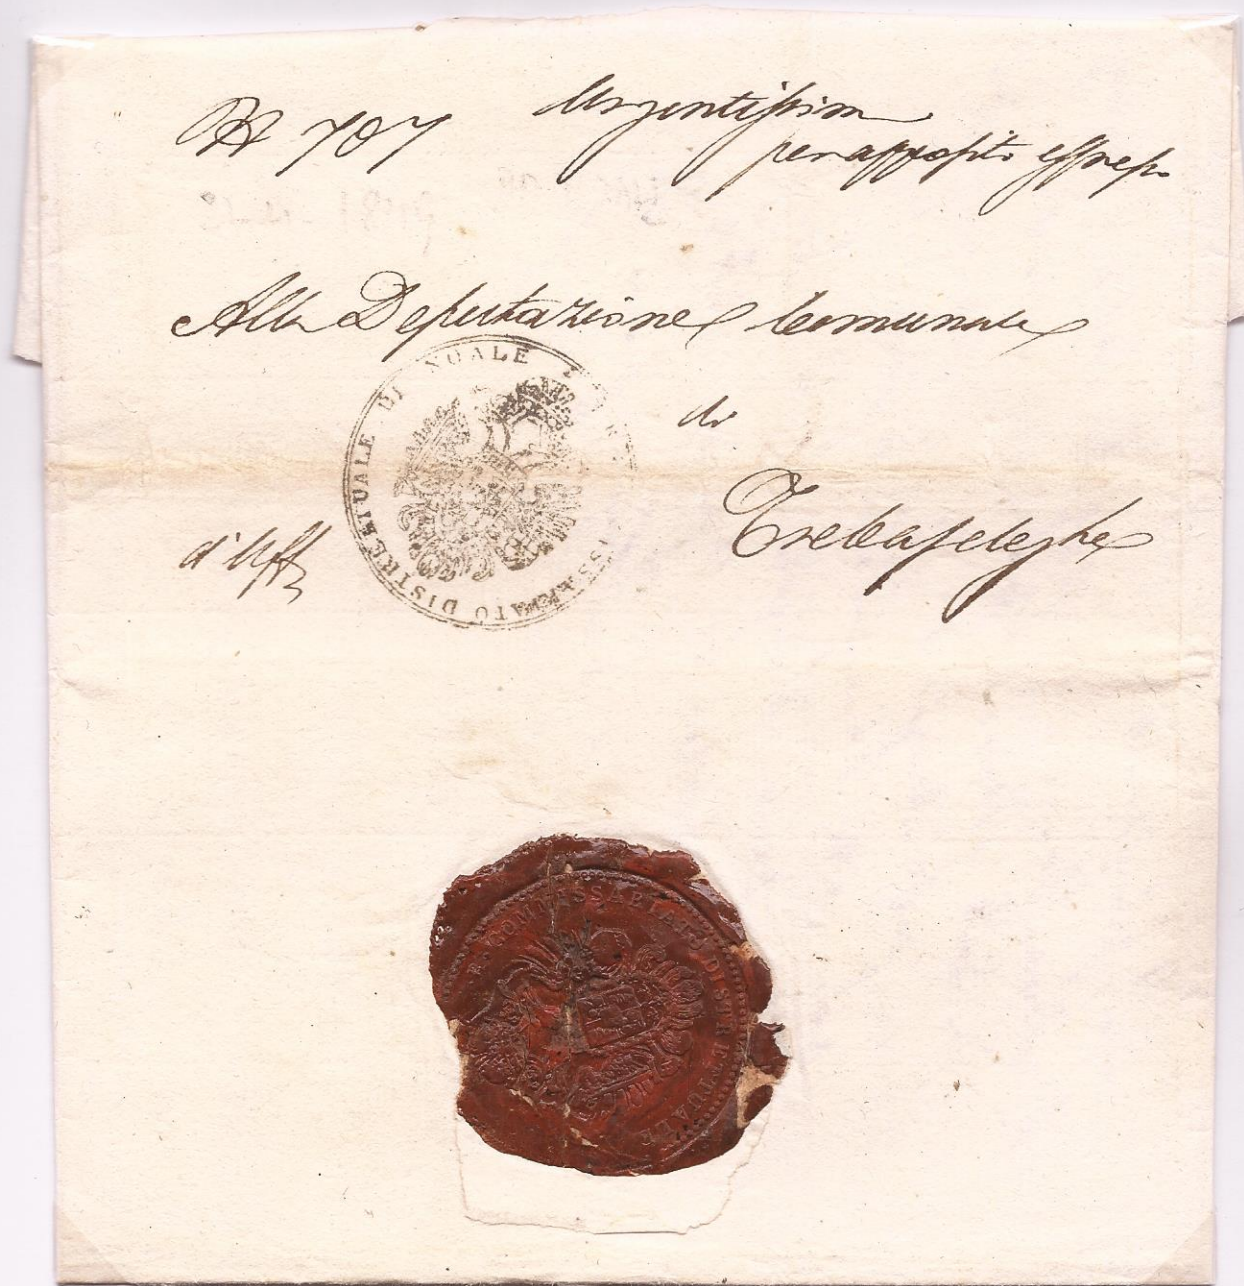 N 707
Urgentissim
per apposito espresso
Alla Deputazione Comunale
di
Trebaseleghe
d'Uff
COMMISSARIATO DISTRETTUALE DI NOALE
R. COMMISSARIATO DISTRETTUALE